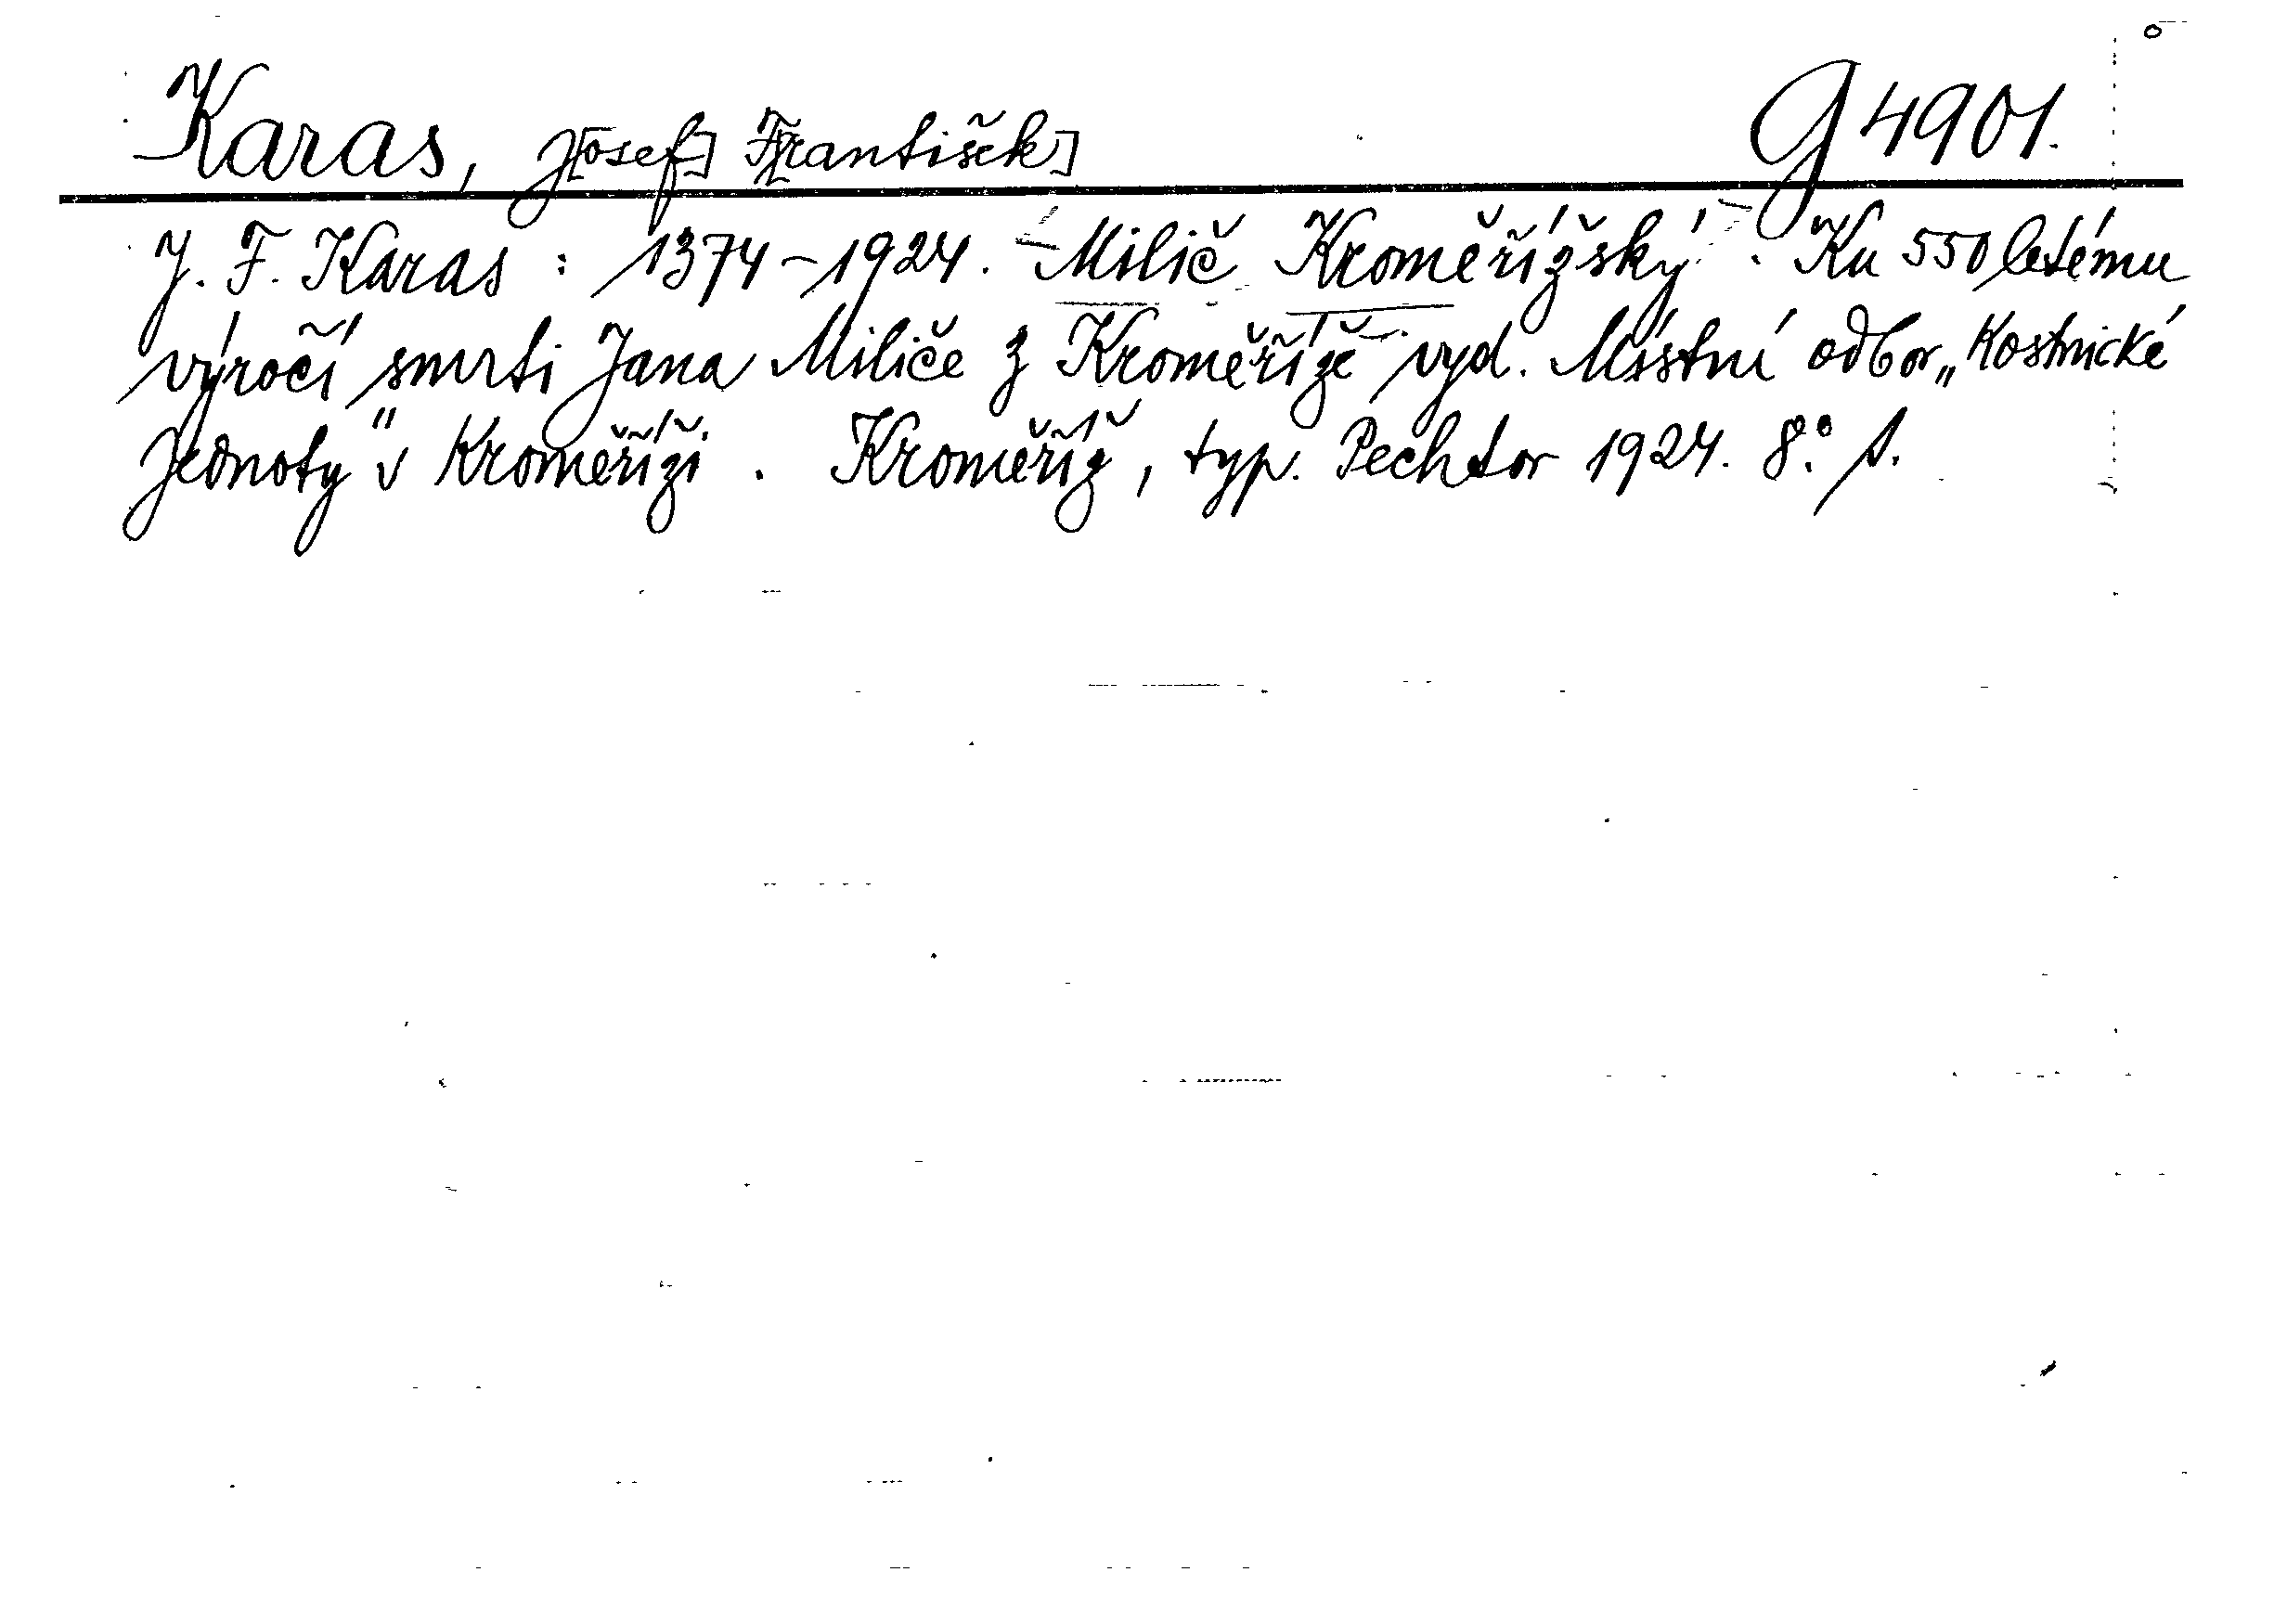 Karas, J[osef] F[rantišek] G 4901.
J. F. Karas : 1374-1924. Milič Kroměřížský. Ku 550letému
výročí smrti Jana Miliče z Kroměříže vyd. Místní odbor „Kostnické
Jednoty" v Kroměříži. Kroměříž, typ. Pechtor 1924. 8°. s.